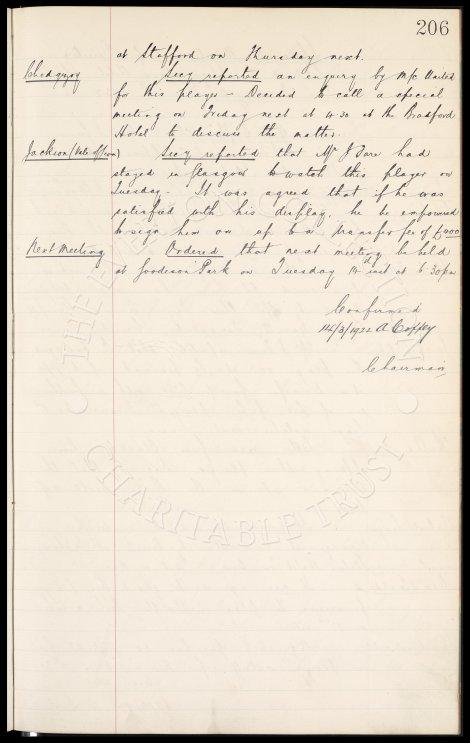 206
at Stafford on Thursday next.
Chedgzoy Secy reported an enquiry by M/c United
for this player – Decided to call a special
meeting on Friday next at 4.30 at the Bradford
Hotel to discuss the matter.
Jackson Secy reported that Mr J Fare had
stayed in Glasgow to watch this player on
Tuesday. It was agreed that if he was
satisfied with his display, he be empowered
to sign him on up to a transfer fee of
Next Meeting Ordered that next meeting be held
at Goodison Park on Tuesday 14th inst at 6.30pm
Confirmed
14/3/1922 A Coffey
Chairman
THE EVERTON COLLECTION
CHARITABLE TRUST